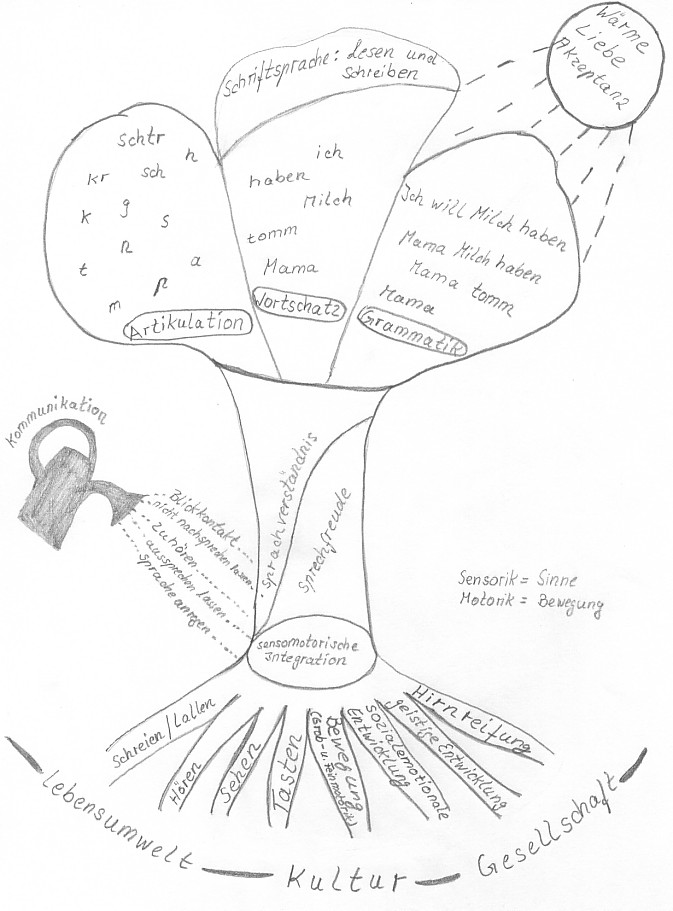 Wärme
Liebe
Akzeptanz
Schriftsprache: Lesen und
Schreiben
Schtr
h
kr
sch
k
g
s
n
t
a
p
m
Artikulation
ich
haben
Milch
tomm
Mama
Wortschatz
Ich will Milch haben
Mama Milch haben
Mama tomm
Mama
Grammatik
Kommunikation
Blickkontakt
nicht nachsprechen lassen
zuhören
aussprechen lassen
Sprache anregen
Sprachverständnis
Sprechfreude
Sensorik = Sinne
Motorik = Bewegung
sensomotorische
Integration
Schreien/Lallen
Hören
Sehen
Tasten
Bewegung
(Grob- u. Feinmotorik)
sozialemotionale
Entwicklung
geistige Entwicklung
Hirnreifung
Lebensumwelt
Kultur
Gesellschaft